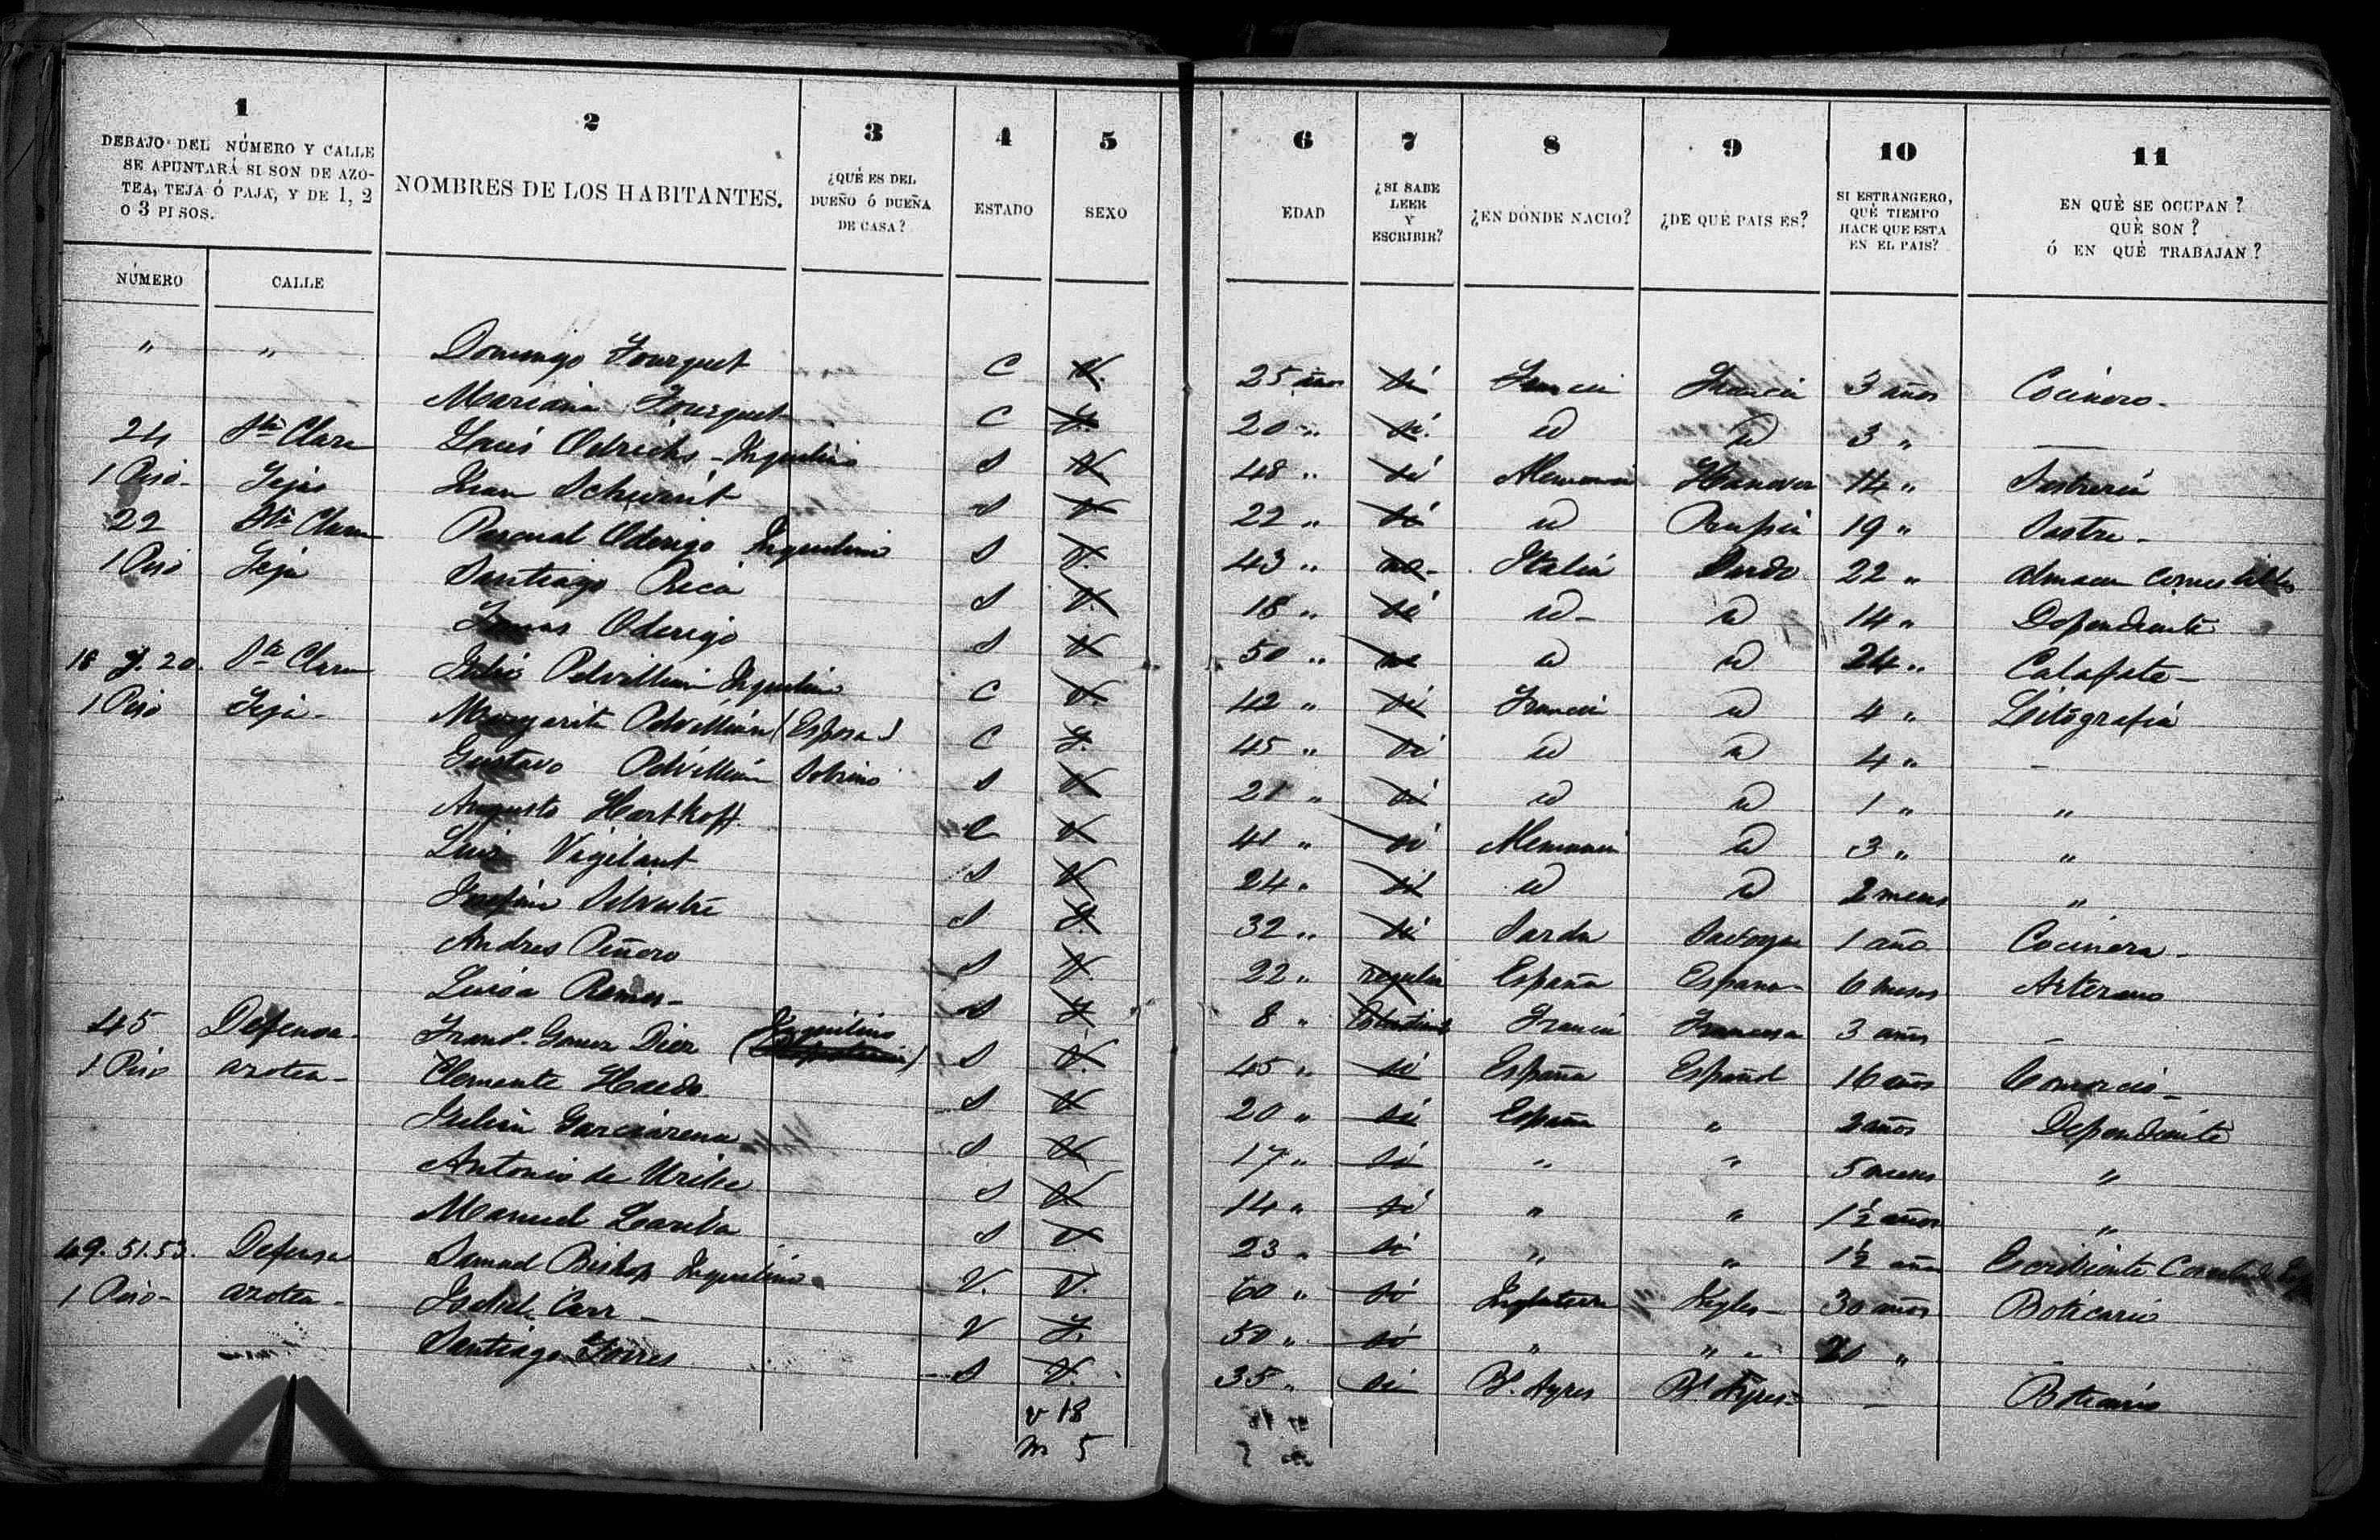 1 2 3 4 5 6 7 8 9 10 11
DEBAJO DEL NÚMERO Y CALLE
SE APUNTARÁ SI SON DE AZO-
TEA, TEJA Ó PAJA, Y DE 1, 2
O 3 PISOS.
NÚMERO CALLE
NOMBRES DE LOS HABITANTES.
¿QUÉ ES DEL
DUEÑO Ó DUEÑA
DE CASA?
ESTADO
SEXO
EDAD
¿SI SABE
LEER
Y
ESCRIBIR?
¿EN DÓNDE NACIO?
¿DE QUÉ PAIS ES?
SI ESTRANGERO,
QUÉ TIEMPO
HACE QUE ESTA
EN EL PAIS?
EN QUÉ SE OCUPAN?
QUÉ SON?
Ó EN QUÉ TRABAJAN?
" " Domingo Fourquet C V. 25 años si Francia Francia 3 años Cocinero-
Mariana Fourquet C H. 20 " si. id id 3 " —
24 Sta Clara Luis Odrichs - Inquilino S V 48 " si Alemania Hanover 14 " Sastreria
1 Piso- Tejas Juan S V 22 " si id Prusia 19 " Sastre-
22 Sta Clara Pascual Oderigo Inquilino S V. 43 " no- Italia Sardo 22 " almacen comestibles
1 Piso Teja Santiago Rica S V. 18 " si id- id 14 " Dependiente
Oderigo S V 50 " no id id 24 " Calafate-
18 y. 20. Sta Clara Julio Inquilino C V. 42 " si Francia id 4 " Litografia
1 Piso Teja- Margarita (Esposa) C H. 45 " si id id 4 " -
Gustavo Sobrino S V 21 " si id id 1 " "
Augusto Hartkoff. C V 41 " si Alemania id 3 " "
Luis Vigilant S V 24 " si id id 2 meses "
Josefina Silvestre S H. 32 " si Sarda 1 año Cocinera-
Andres Piñero S V. 22 " regular España España- 6 meses
Luisa S H 8 " Francia Francesa 3 años -
45 Defensa- Gomez Diez (Inquilino) S V. 45 " si España Español 16 años Comercio-
1 Piso azotea- Clemente Haedo. S V 20 " si España " 2 años Dependiente
Julian S V 17 " si " " 5 meses "
Antonio de Uribe S V 14 " si " " 1½ años "
Manuel S V 23 " si " " 1½ año Escribiente
49. 51. 53. Defensa Samuel Bishop Inquilino V. V. 60 " si Inglaterra Ingles- 30 años Boticario
1 Piso- azotea- Isabel Carr- V H. 50 " si " " - 20 " -
Santiago Torres S V. 35 " si Bs. Ayres Bs. Ayres- - Boticario
v 18
m 5